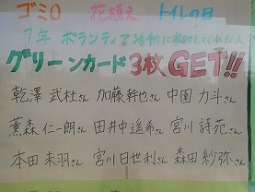 ゴミ0 花植え トイレの日
7年 ボランティア活動に参加してくれた人
グリーンカード3枚GET!!
乾澤 武杜さん 加藤幹也さん 中園 力斗さん
薫森 仁一朗さん 田井中遥希さん 宮川詩苑さん
本田 未羽さん 宮川日世利さん 森田紗弥さん